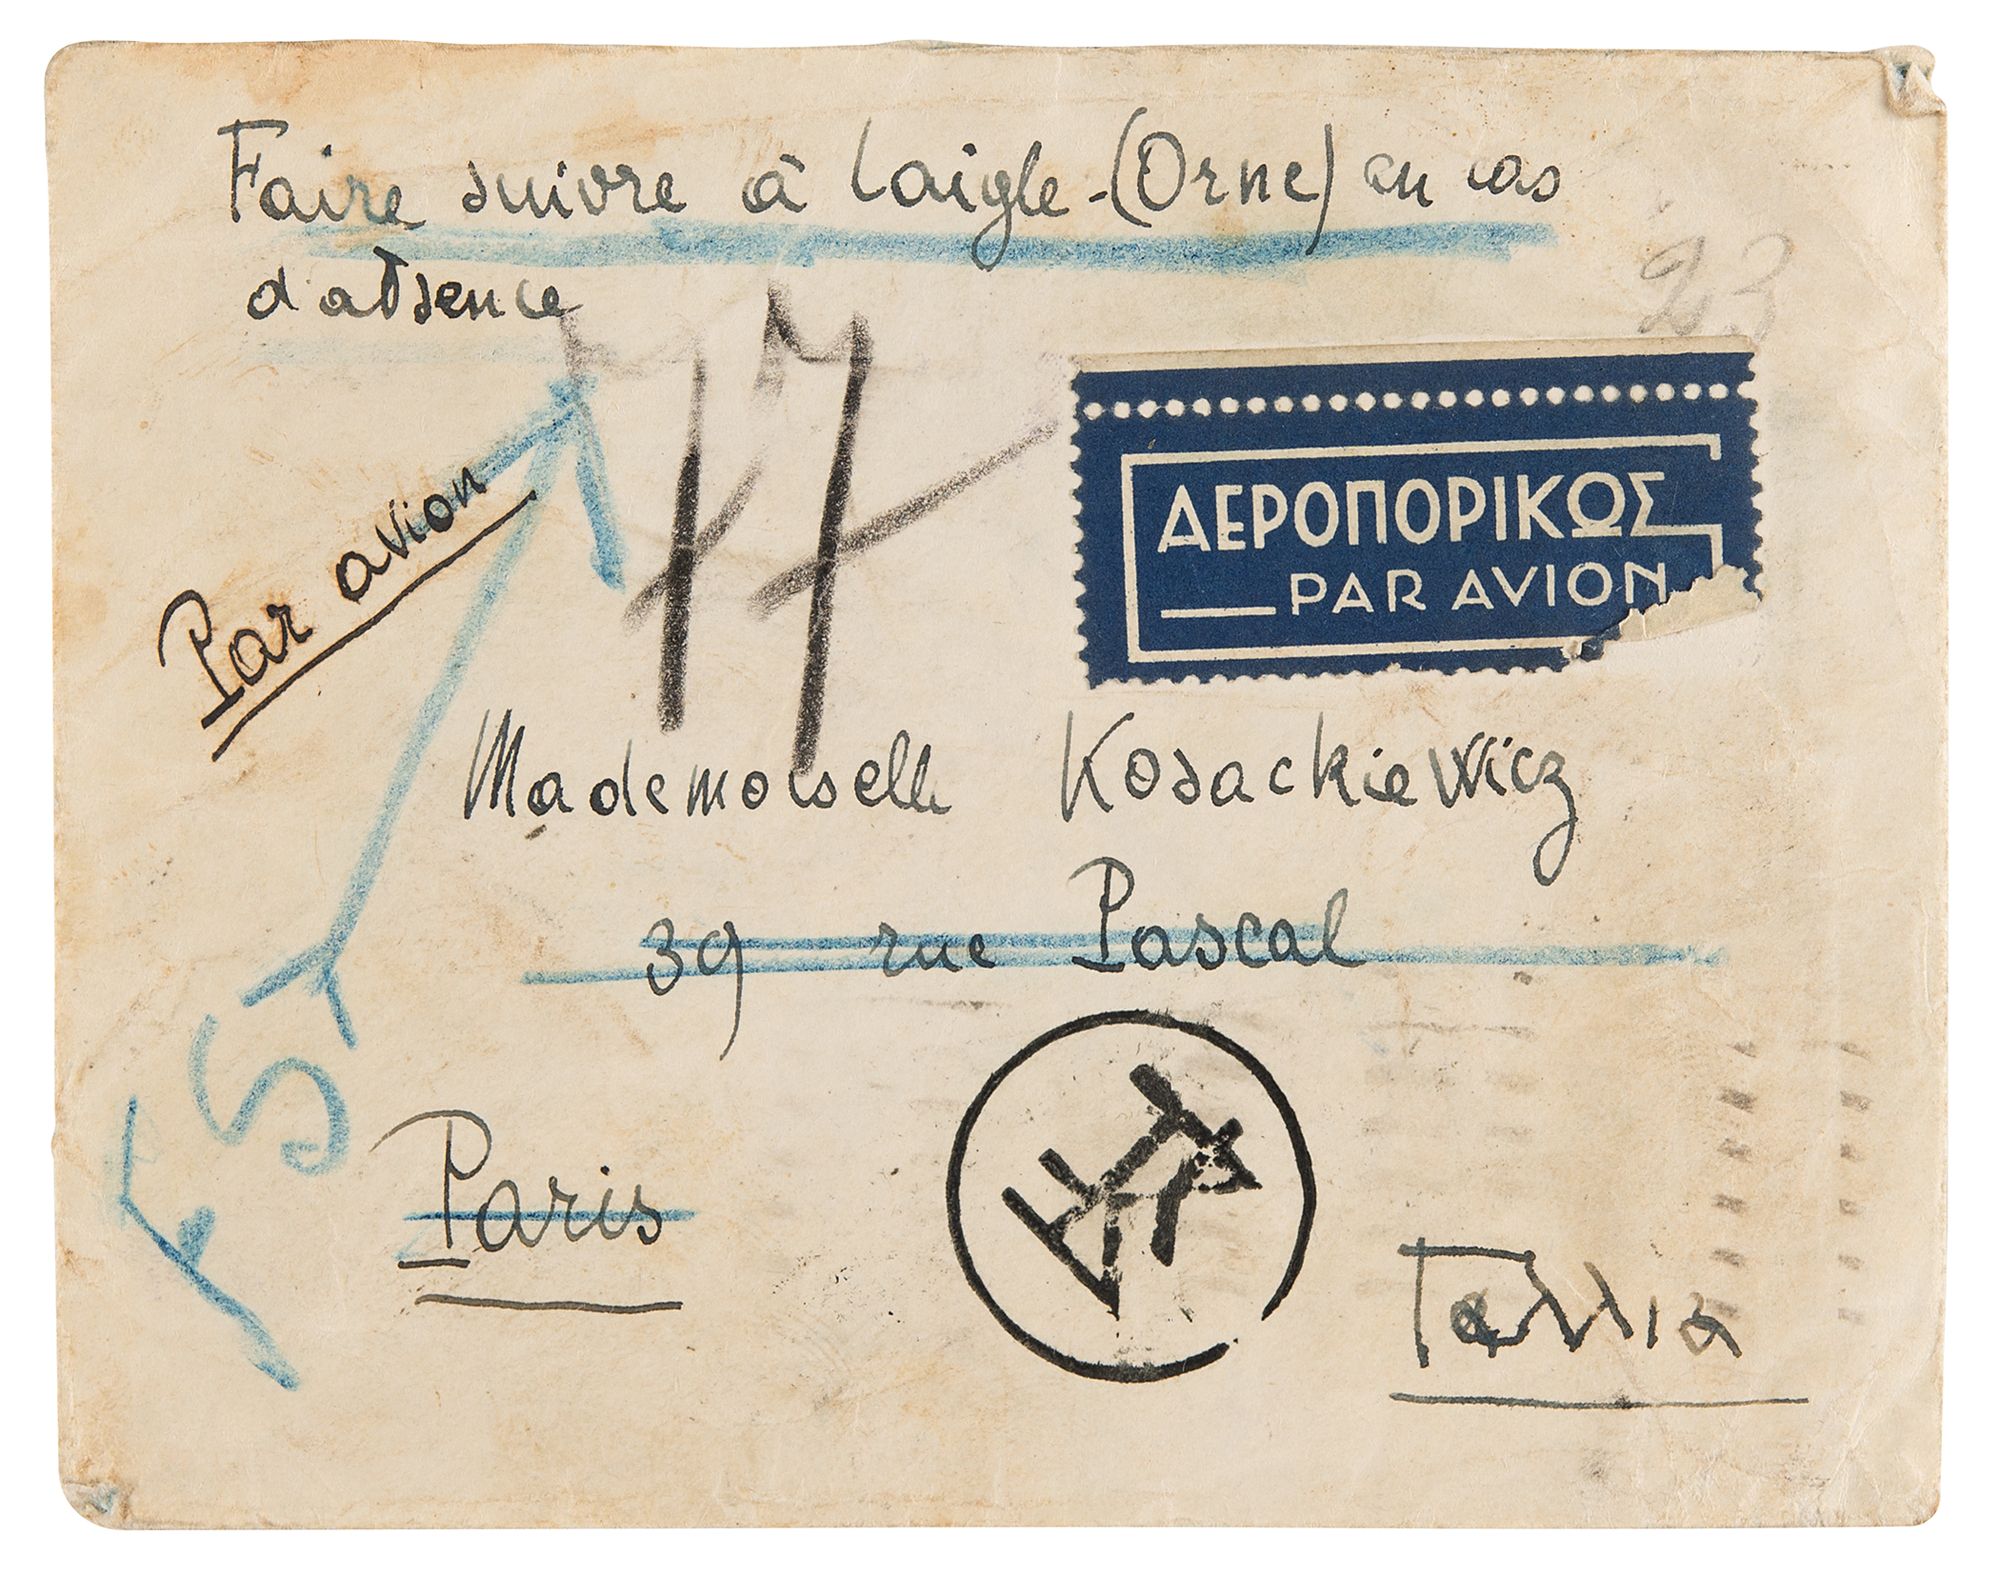 Faire suivre à Laigle-(Orne) en cas
d'absence
23
77
Par avion
ΑΕΡΟΠΟΡΙΚΩΣ
PAR AVION
Mademoiselle Kosackiewicz
39 rue Pascal
Paris
Γαλλια